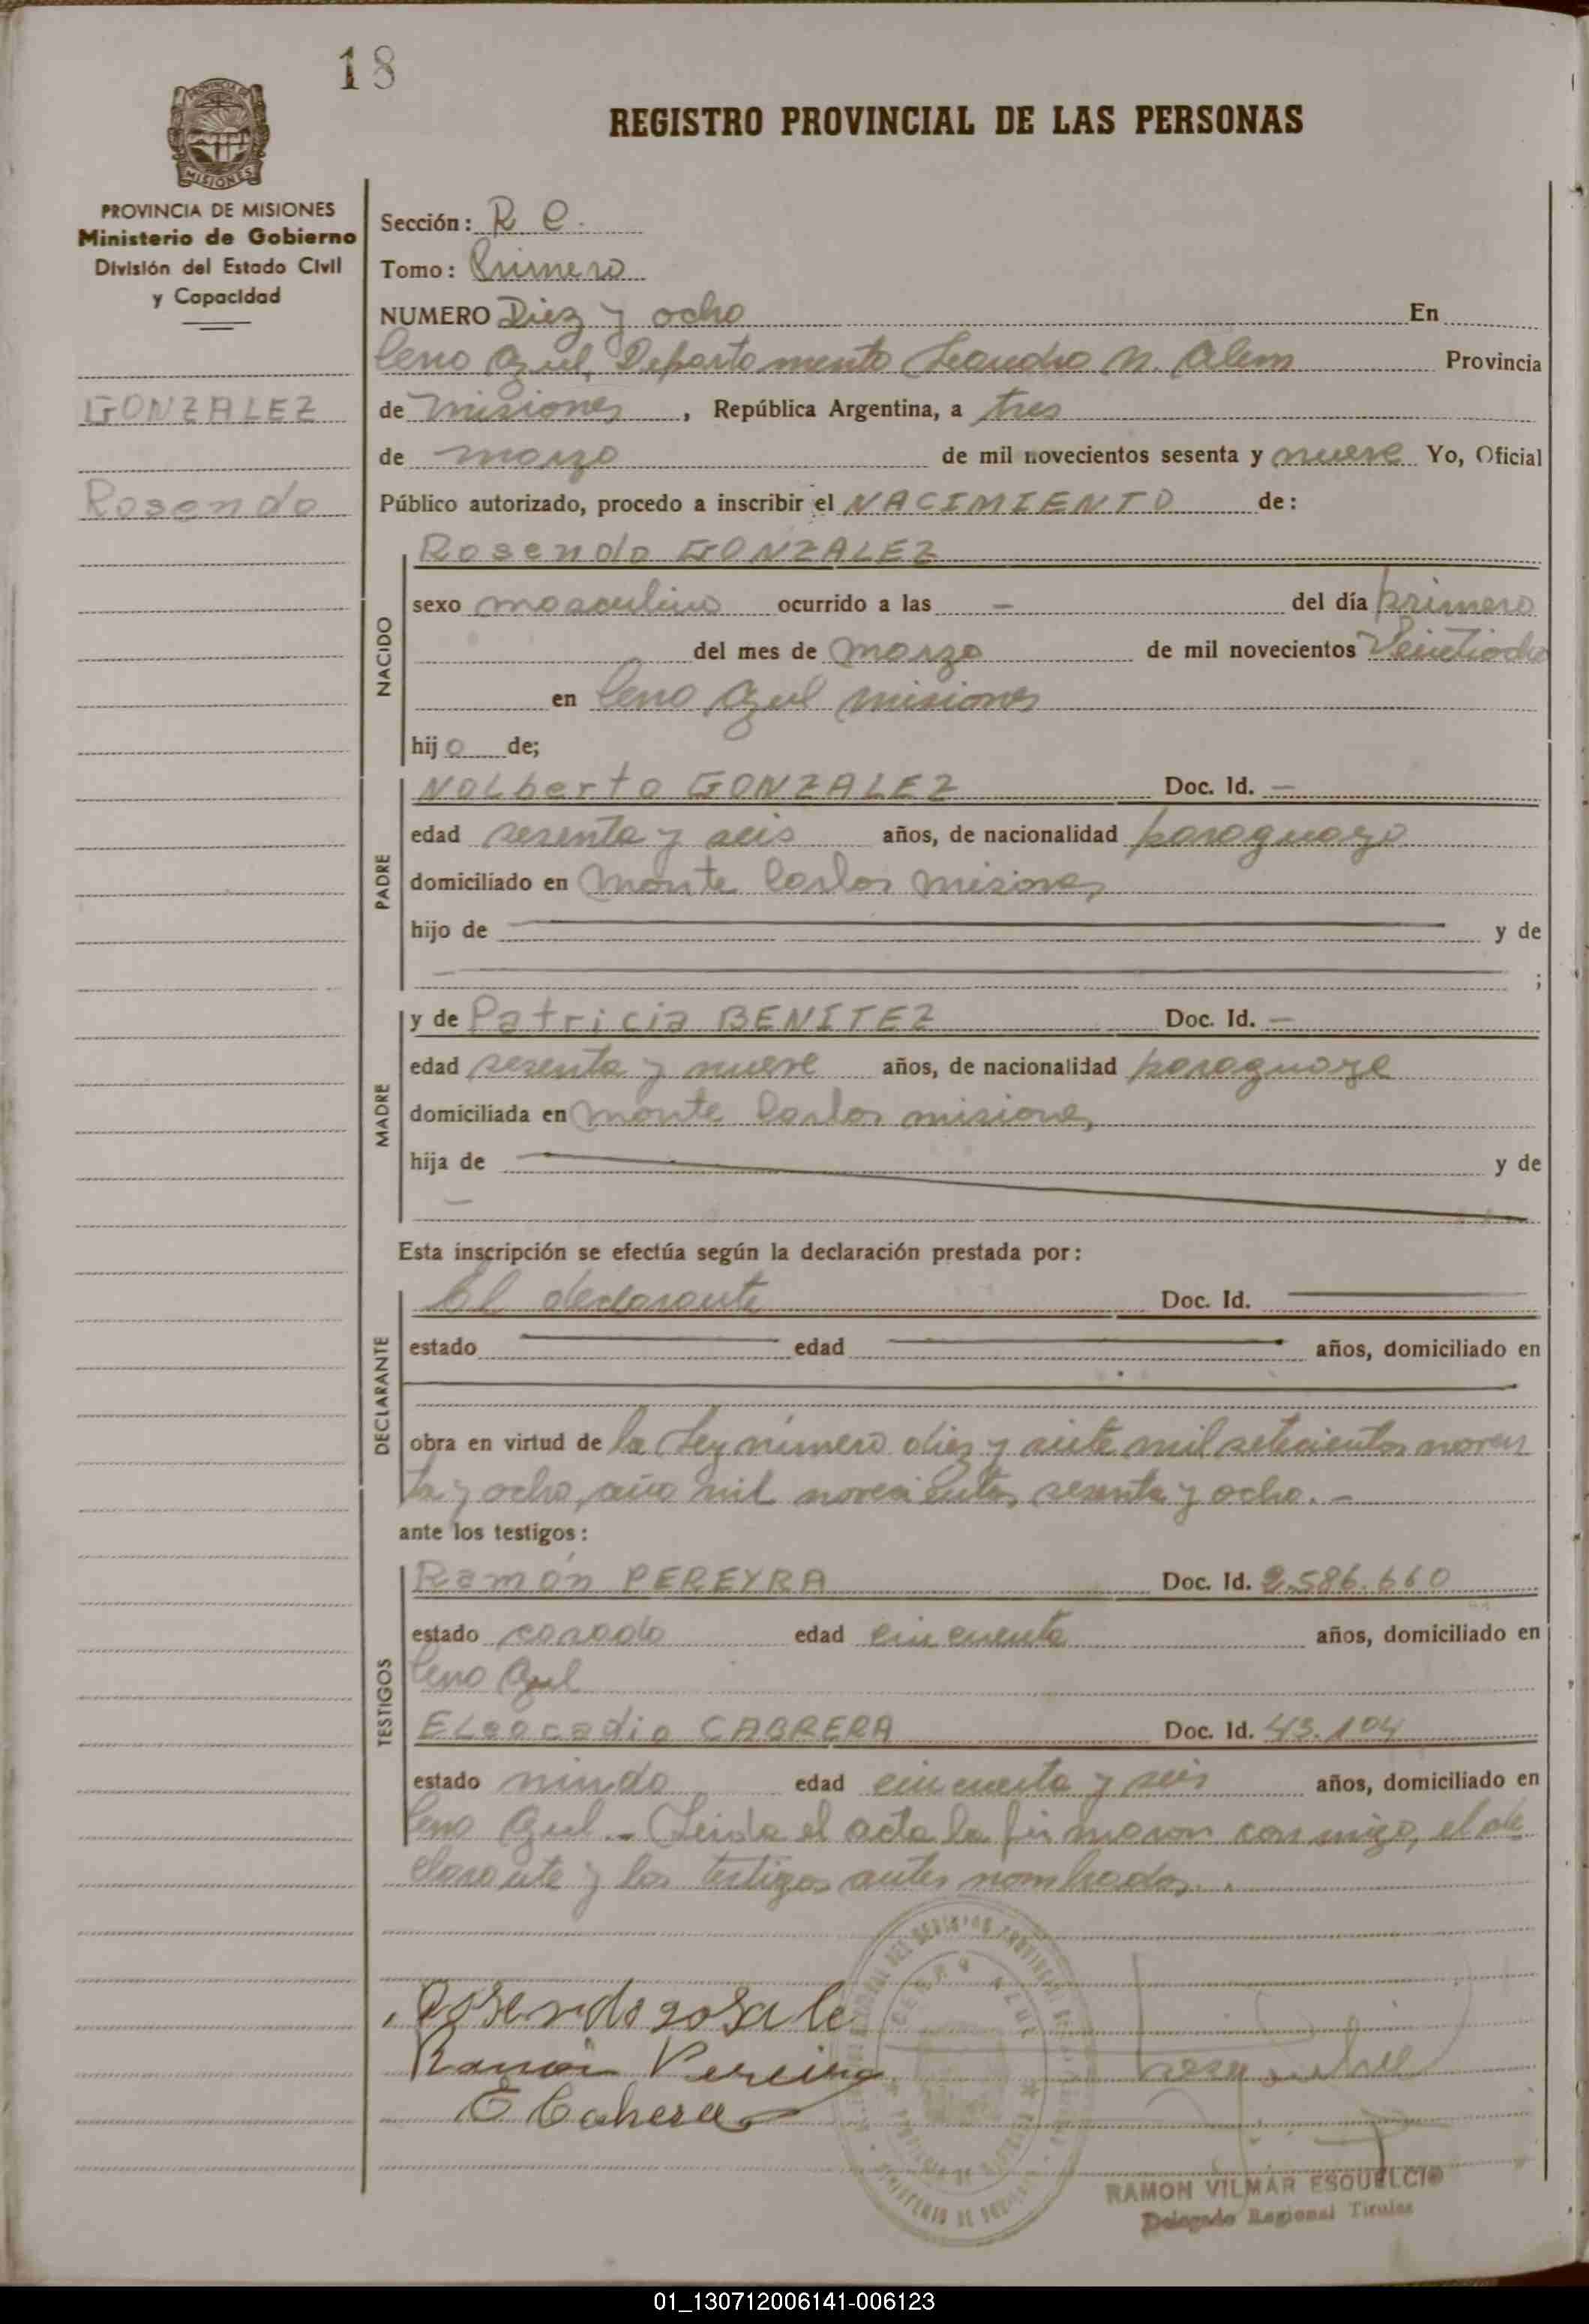 18
REGISTRO PROVINCIAL DE LAS PERSONAS
PROVINCIA DE MISIONES
MISIONES
PROVINCIA DE MISIONES
Ministerio de Gobierno
División del Estado Civil
y Capacidad
GONZALEZ
Rosendo
Sección: R C.
Tomo: Primero
NUMERO Diez y ocho En
Cerro Azul, Departamento Leandro N. Alem Provincia
de Misiones, República Argentina, a tres
de marzo de mil novecientos sesenta y nueve Yo, Oficial
Público autorizado, procedo a inscribir el NACIMIENTO de:
NACIDO
Rosendo GONZALEZ
sexo masculino ocurrido a las — del día primero
del mes de marzo de mil novecientos Veintiocho
en Cerro Azul Misiones
hijo de;
PADRE
Nolberto GONZALEZ Doc. Id. —
edad sesenta y seis años, de nacionalidad paraguayo
domiciliado en Monte Carlos Misiones
hijo de y de
;
MADRE
y de Patricia BENITEZ Doc. Id. —
edad sesenta y nueve años, de nacionalidad paraguaya
domiciliada en Monte Carlos Misiones
hija de y de
—
Esta inscripción se efectúa según la declaración prestada por:
DECLARANTE
El declarante Doc. Id.
estado edad años, domiciliado en
obra en virtud de la Ley número diez y siete mil setecientos noven
ta y ocho, año mil novecientos sesenta y ocho. —
ante los testigos:
TESTIGOS
Ramón PEREYRA Doc. Id. 2.586.660
estado casado edad cincuenta años, domiciliado en
Cerro Azul
ELeocadio CABRERA Doc. Id. 43.104
estado viudo edad cincuenta y seis años, domiciliado en
Cerro Azul. – Leida el acta la firmaron con migo, el de
clarante y los testigos antes nombrados. .
Ramón Pereira
E Cabrera
CERRO AZUL
RAMON VILMAR ESQUELCIO
Delegado Regional Titular
01_130712006141-006123